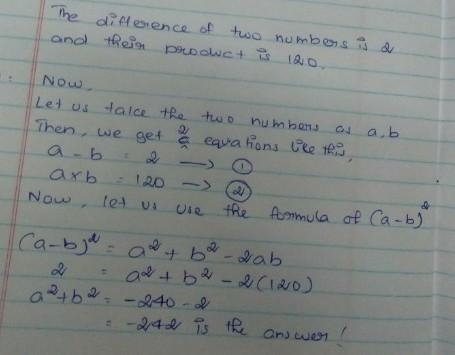 The difference of two numbers is 2
and their product is 120.
Now,
Let us take the two numbers as a, b
Then, we get 2 equations like this,
a - b = 2 → ①
a x b = 120 → ②
Now, let us use the formula of (a-b)²
(a-b)² = a² + b² - 2ab
2 = a² + b² - 2(120)
a² + b² = -240 - 2
= -242 is the answer!